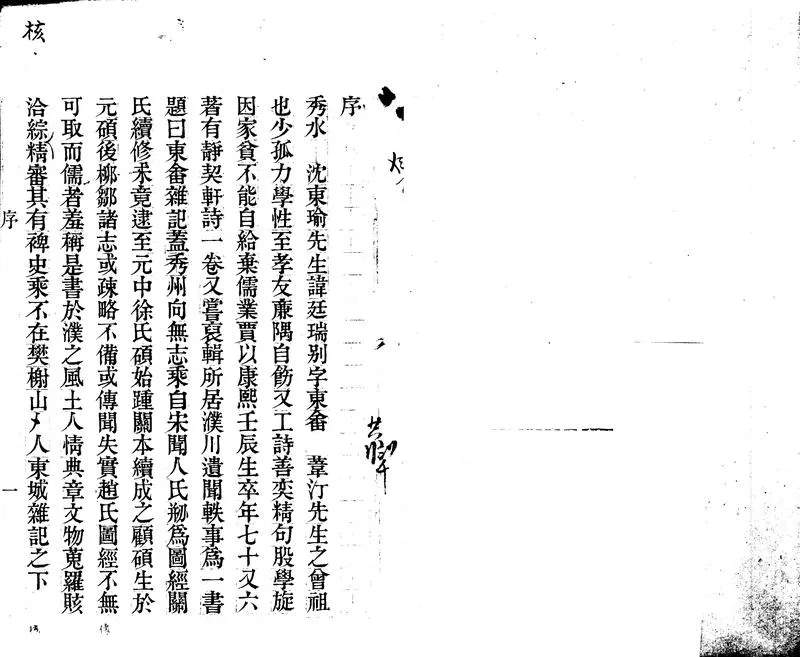 序
秀水　沈東瑜先生諱廷瑞别字東畬　葦汀先生之曾祖
也少孤力學性至孝友亷隅自飭又工詩善奕精句股學旋
因家貧不能自給棄儒業賈以康熙壬辰生卒年七十又六
著有靜契軒詩一卷又嘗裒輯所居濮川遺聞軼事爲一書
題曰東畬雜記蓋秀州向無志乘自宋聞人氏剏爲圖經關
氏續修未竟逮至元中徐氏碩始踵關本續成之顧碩生於
元碩後柳鄒諸志或疎略不備或傳聞失實趙氏圖經不無
可取而儒者羞稱是書於濮之風土人情典章文物蒐羅賅
洽綜精審其有裨史乘不在樊榭山人東城雜記之下
序
一
核